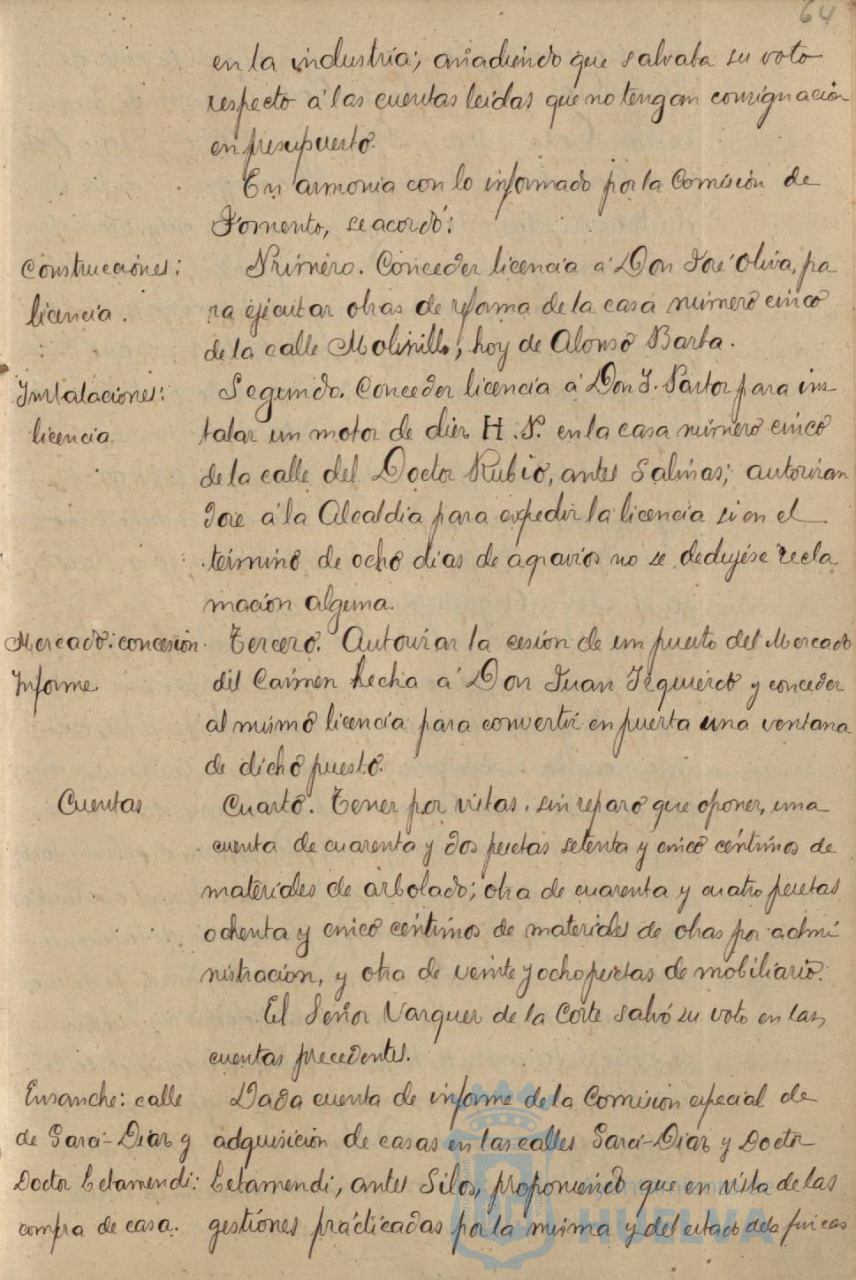 64
en la industria; añadiendo que salvaba su voto
respecto á las cuentas leidas que no tengan consignación
en presupuesto.
En armonia con lo informado por la Comisión de
Fomento, se acordó:
Construcciones:
licencia.
Primero. Conceder licencia á Don José Oliva, pa
ra ejecutar obras de reforma de la casa número cinco
de la calle Molinillo, hoy de Alonso Barba.
Instalaciones:
licencia
Segundo. Conceder licencia á Don J. Pastor para ins
talar un motor de diez H.P. en la casa número cinco
de la calle del Doctor Rubio, antes Salinas; autorizan
dose á la Alcaldía para expedir la licencia si en el
término de ocho dias de agravios no se dedujese recla
mación alguna.
Mercado: concesión
Informe
Tercero. Autorizar la cesión de un puesto del Mercado
del Carmen hecha á Don Juan Izquierdo y conceder
al mismo licencia para convertir en puerta una ventana
de dicho puesto.
Cuentas
Cuarto. Tener por vistas, sin reparo que oponer, una
cuenta de cuarenta y dos pesetas setenta y cinco céntimos de
materiales de arbolado; otra de cuarenta y cuatro pesetas
ochenta y cinco céntimos de materiales de obras por admi
nistración, y otra de veinte y ocho pesetas de mobiliario.
El Señor Vazquez de la Corte salvó su voto en las
cuentas precedentes.
Ensanche: calle
de Garci-Diaz y
Doctor Letamendi:
compra de casa.
Dada cuenta de informe de la Comisión especial de
adquisición de casas en las calles Garci-Diaz y Doctor
Letamendi, antes Silos, proponiendo que en vista de las
gestiones practicadas por la misma y del estado de la fincas
HUELVA